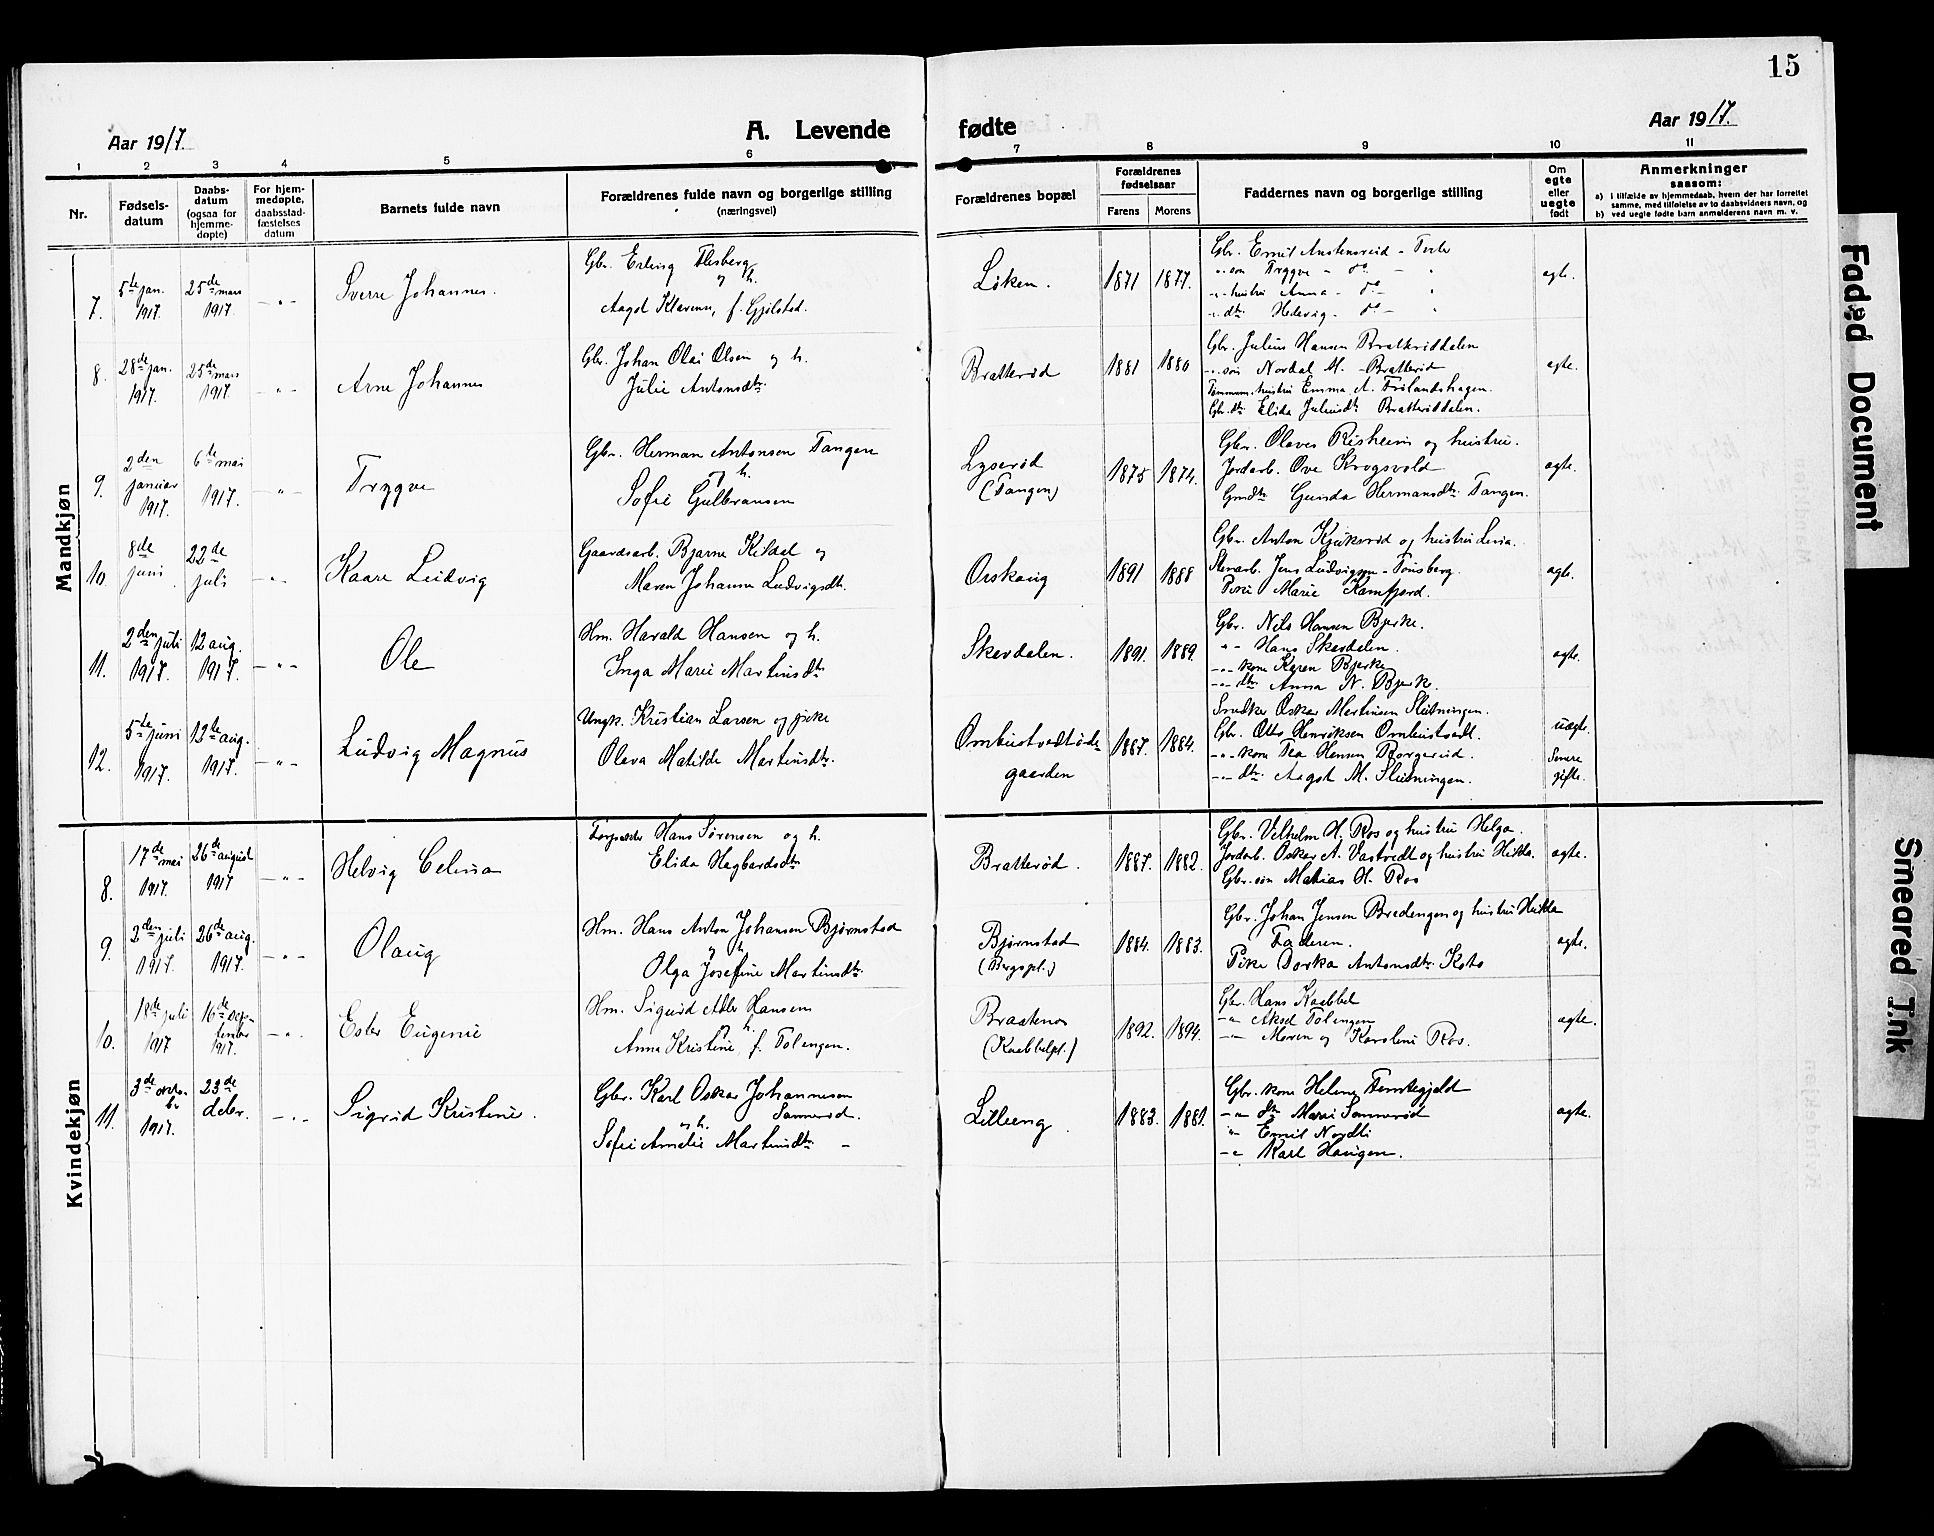 15
Aar 1917.
A. Levende fødte
Aar 1917.
1 2 3 4 5 6 7 8 9 10 11
Nr.
Fødsels-
datum
Daabs-
datum
(ogsaa for
hjemme-
døpte)
For hjem-
medøpte,
daabsstad-
fæstelses
datum
Barnets fulde navn
Forældrenes fulde navn og borgerlige stilling
(næringsvei)
Forældrenes bopæl
Forældrenes
fødselsaar
Farens Morens
Faddernes navn og borgerlige stilling
Om
egte
eller
uegte
født
Anmerkninger
saasom:
a) i tilfælde av hjemmedaab, hvem der har forrettet
samme, med tilføielse av to daabsvidners navn, og
b) ved uegte fødte barn anmelderens navn m. v.
Mandkjøn
7.
5te jan.
1917.
25de mars
1917.
- " -
Sverre Johannes.
Gbr. Erling Flesberg
og h.
Aagot Klarenne, f. Gjelstad.
Løken.
1871 1877.
Gbr. Emil Austensrød - Forle
" - søn Trygve - do - "
" - hustru Anna - do - "
" - dtr. Hedevig - do - "
egte.
8.
28de jan.
1917.
25de mars
1917.
- " -
Arne Johannes
Gbr. Johan Olai Olsen og h.
Julie Antonsdtr.
Bratterød
1881 1880
Gbr. Julius Hansen Bratterøddalen
" - søn Nordal M. - Bratterød
Tømmerm. hustru Emma A. Frilandshagen.
Gbr. dtr. Elida Juliusdtr. Bratterøddalen.
egte.
9.
2den
januar
1917.
6te mai
1917.
- " -
Trygve
Gbr. Herman Antonsen Tangen
og h.
Sofie Gulbransen
Lyserød
(Tangen)
1875 1874.
Gbr. Olaves Risheim og hustru.
Jordarb. Ove Krogsvold
Gmdtr. Gunda Hermansdtr. Tangen.
egte.
10.
8de
juni
22de
juli
- " -
Kaare Ludvig
Gaardsarb. Bjarne Kildal og
Maren Johanne Ludvigsdtr.
Orskaug
1891 1888
Gbr. Anton Kjuksrød og hustru Lovisa.
Stenarb. Jens Ludvigsen - Tønsberg.
Pike Marie Kamfjord.
egte.
11.
2den juli
1917.
12 aug.
1917.
- " -
Ole
Hm. Harald Hansen og h.
Inga Marie Martinsdtr.
Skevdalen.
1891. 1889.
Gbr. Nils Hansen Bjerke.
" - Hans Skevdalen.
" - kone Karen Bjerke
" - dtr. Anna N. Bjerke.
egte.
12.
5te juni
1917.
12te aug.
1917.
- " -
Ludvig Magnus
Ungk. Kristian Larsen og pike
Olava Matilde Martinsdtr.
Ombustvedtøde-
gaarden
1887. 1884.
Snedker Oskar Martinsen Slutningen.
Gbr. Otto Henriksen Ombustvedt.
" - kone Tea Hansen Borgerød
" - dtr. Aagot M. Slutningen.
uegte.
Senere
gifte.
Kvindekjøn
8.
17de mai
1917.
26de august
1917
- " -
Helvig Celina
Hans Sørensen og h.
Elida Hagbardsdtr.
Bratterød.
1887. 1882.
Gbr. Vilhelm H. Ros og hustru Helga.
Jordarb. Oskar A. Vastvedt og hustru Hilda.
Gbr. søn Matias H. Ros
egte.
9.
2den juli
1917.
26de aug.
1917.
- " -
Olaug
Hm. Hans Anton Johansen Bjørnstad
og h.
Olga Josefine Martinsdtr.
Bjørnstad
(Bergspl.)
1884. 1883.
Gbr. Johan Jensen Bredengen og hustru Hilda
Faderen.
Pike Dorka Antonsdtr. Koto
egte.
10.
18de juli
1917
16de sep-
tember
1917.
- " -
Ester Eugenie
Hm. Sigurd Adler Hansen
og h.
Anna Kristine f. Tolengen.
Braatenos
(Kaabbelpl.)
1892. 1894.
Gbr. Hans Kaabbel
- " Aksel Tolengen
- " - Maren og Karoline Ros.
egte.
11.
3de octo-
br
1917.
23de
debr.
- " -
Sigrid Kristine.
Gbr. Karl Oskar Johannesen
Sannerød.
og h.
Sofie Amelie Martinsdtr. -
Lilleeng.
1883. 1881.
Gbr. kone Helene Temtegjeld
- " dtr Marie Sannerød
" Emil Nordli
- " Karl Haugen.
egte.
Faded Document
Smeared Ink